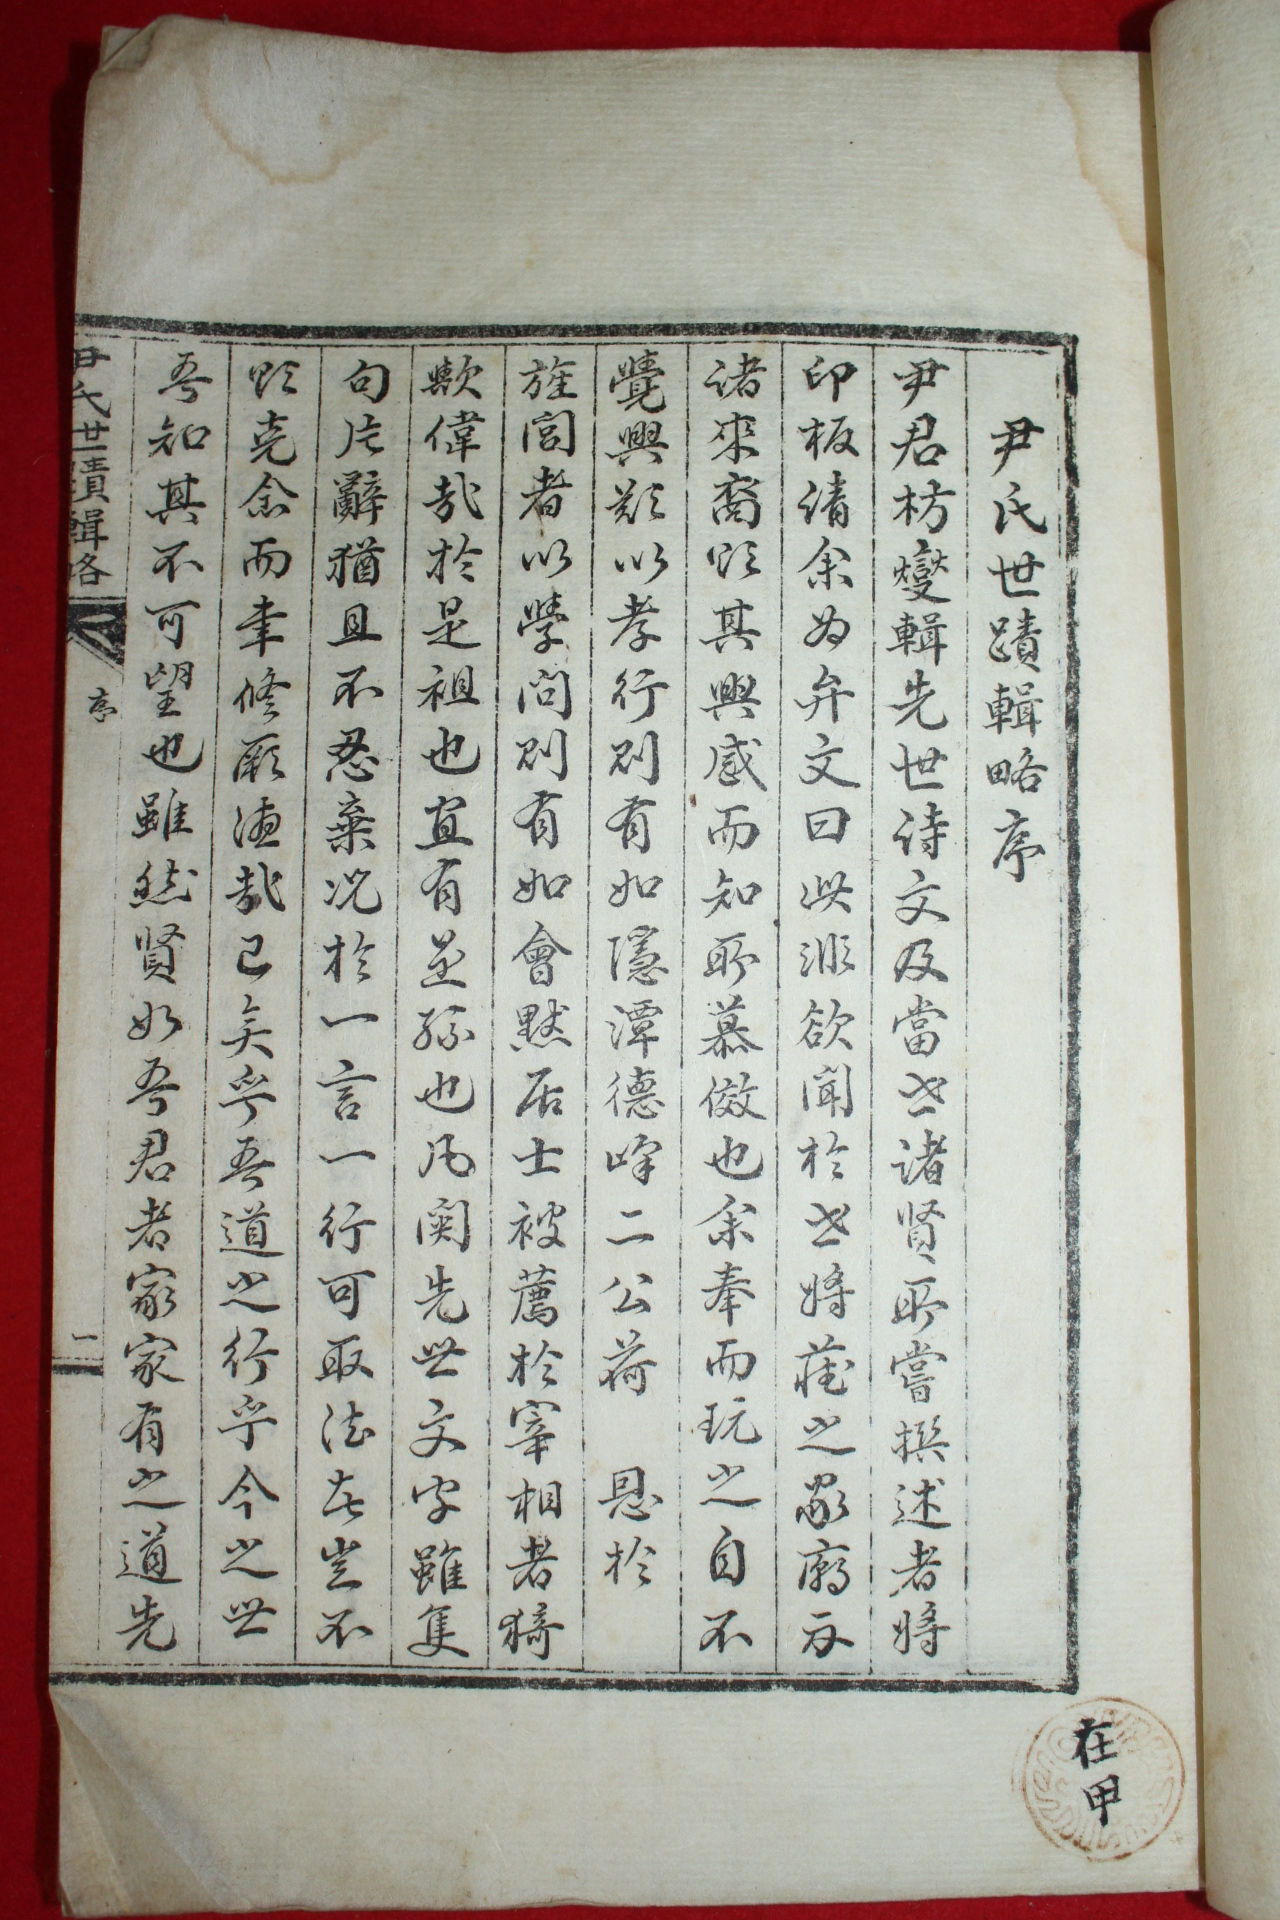 尹氏世蹟輯略序
尹君枋燮輯先世詩文及當世諸賢所嘗撰述者將
印板請余為弁文曰此非欲聞於世將藏之家廟示
諸來裔欲其興感而知所慕倣也余奉而玩之自不
覺興歎以孝行則有如隱潭德峰二公荷　恩於
旌閭者以學問則有如會默居士被薦於宰相者猗
歟偉哉於是祖也宜有是孫也凡関先世文字雖隻
句片辭猶且不忍棄况於一言一行可取法者豈不
欲克念而聿修厥德哉已矣乎吾道之行乎今之世
吾知其不可望也雖然賢如吾君者家家有之道先
尹氏世蹟輯略
序
一
在甲